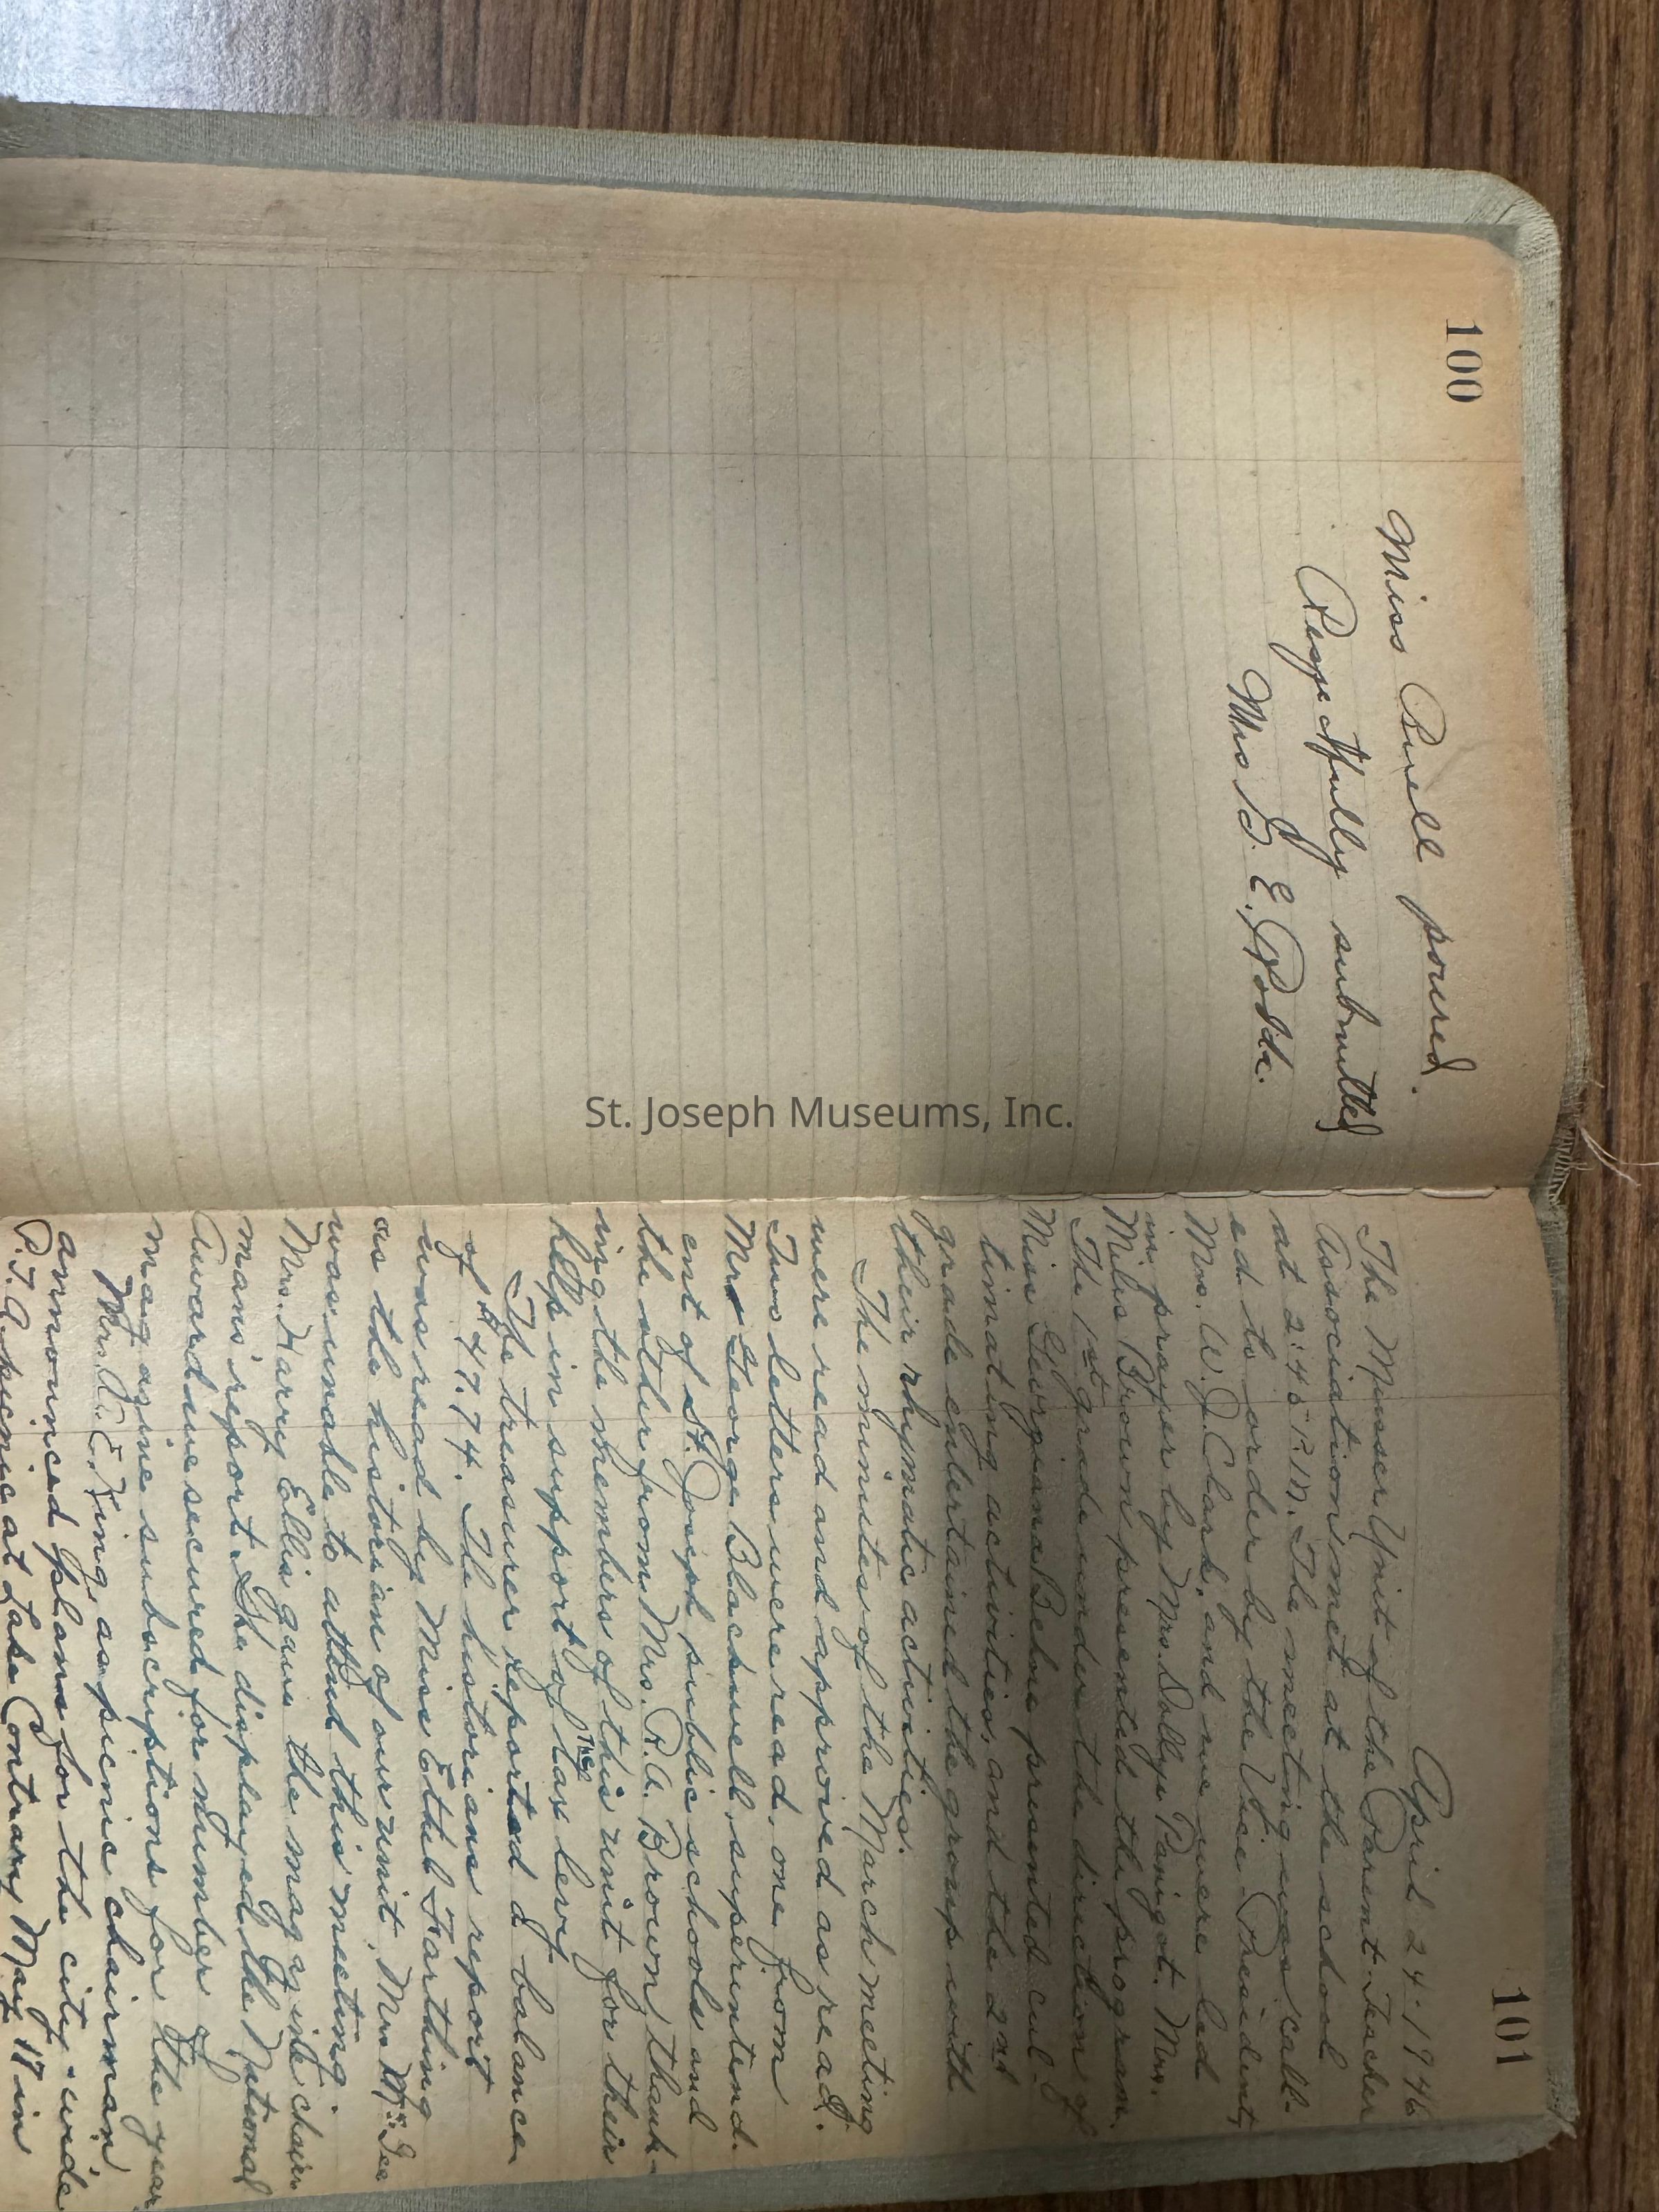 100
Miss Buell poured.
Respectfully submitted
Mrs B. E. Podda.
101
April 24-1946
The Musser Unit of the Parent-Teacher
Association met at the school
at 2:45 P.M. The meeting was call-
ed to order by the Vice President,
Mrs. W. J. Clark, and we were led
in prayer by Mrs. Dollye Pani got. Mrs.
Miles Brown presented the program.
The 1st grade under the direction of
Miss Georgiana Behne presented cul-
timating activities, and the 2nd
grade entertained the group with
their rhymatic activities.
The minutes of the March meeting
were read and approved as read.
Two letters were read, one from
Mr George Blackwell, superintend-
ent of St. Joseph public schools and
the other from Mrs. R. A. Brown thank-
ing the members of this unit for their
help in support of the tax levy.
The treasurer reported a balance
of $47.74. The historians report
was read by Miss Ethel Farthing
as the historian of our unit, Mrs Mc Gee
was unable to attend this meeting.
Mrs. Harry Ellis gave the magazine chair-
mans' report. She displayed the National
Award we secured for number of
magazine subscriptions for the year.
Mrs. A. E. King, as picnic chairman
announced plans for the city-wide
P.T.A. picnic at Lake Contrary May 17 in
St. Joseph Museums, Inc.